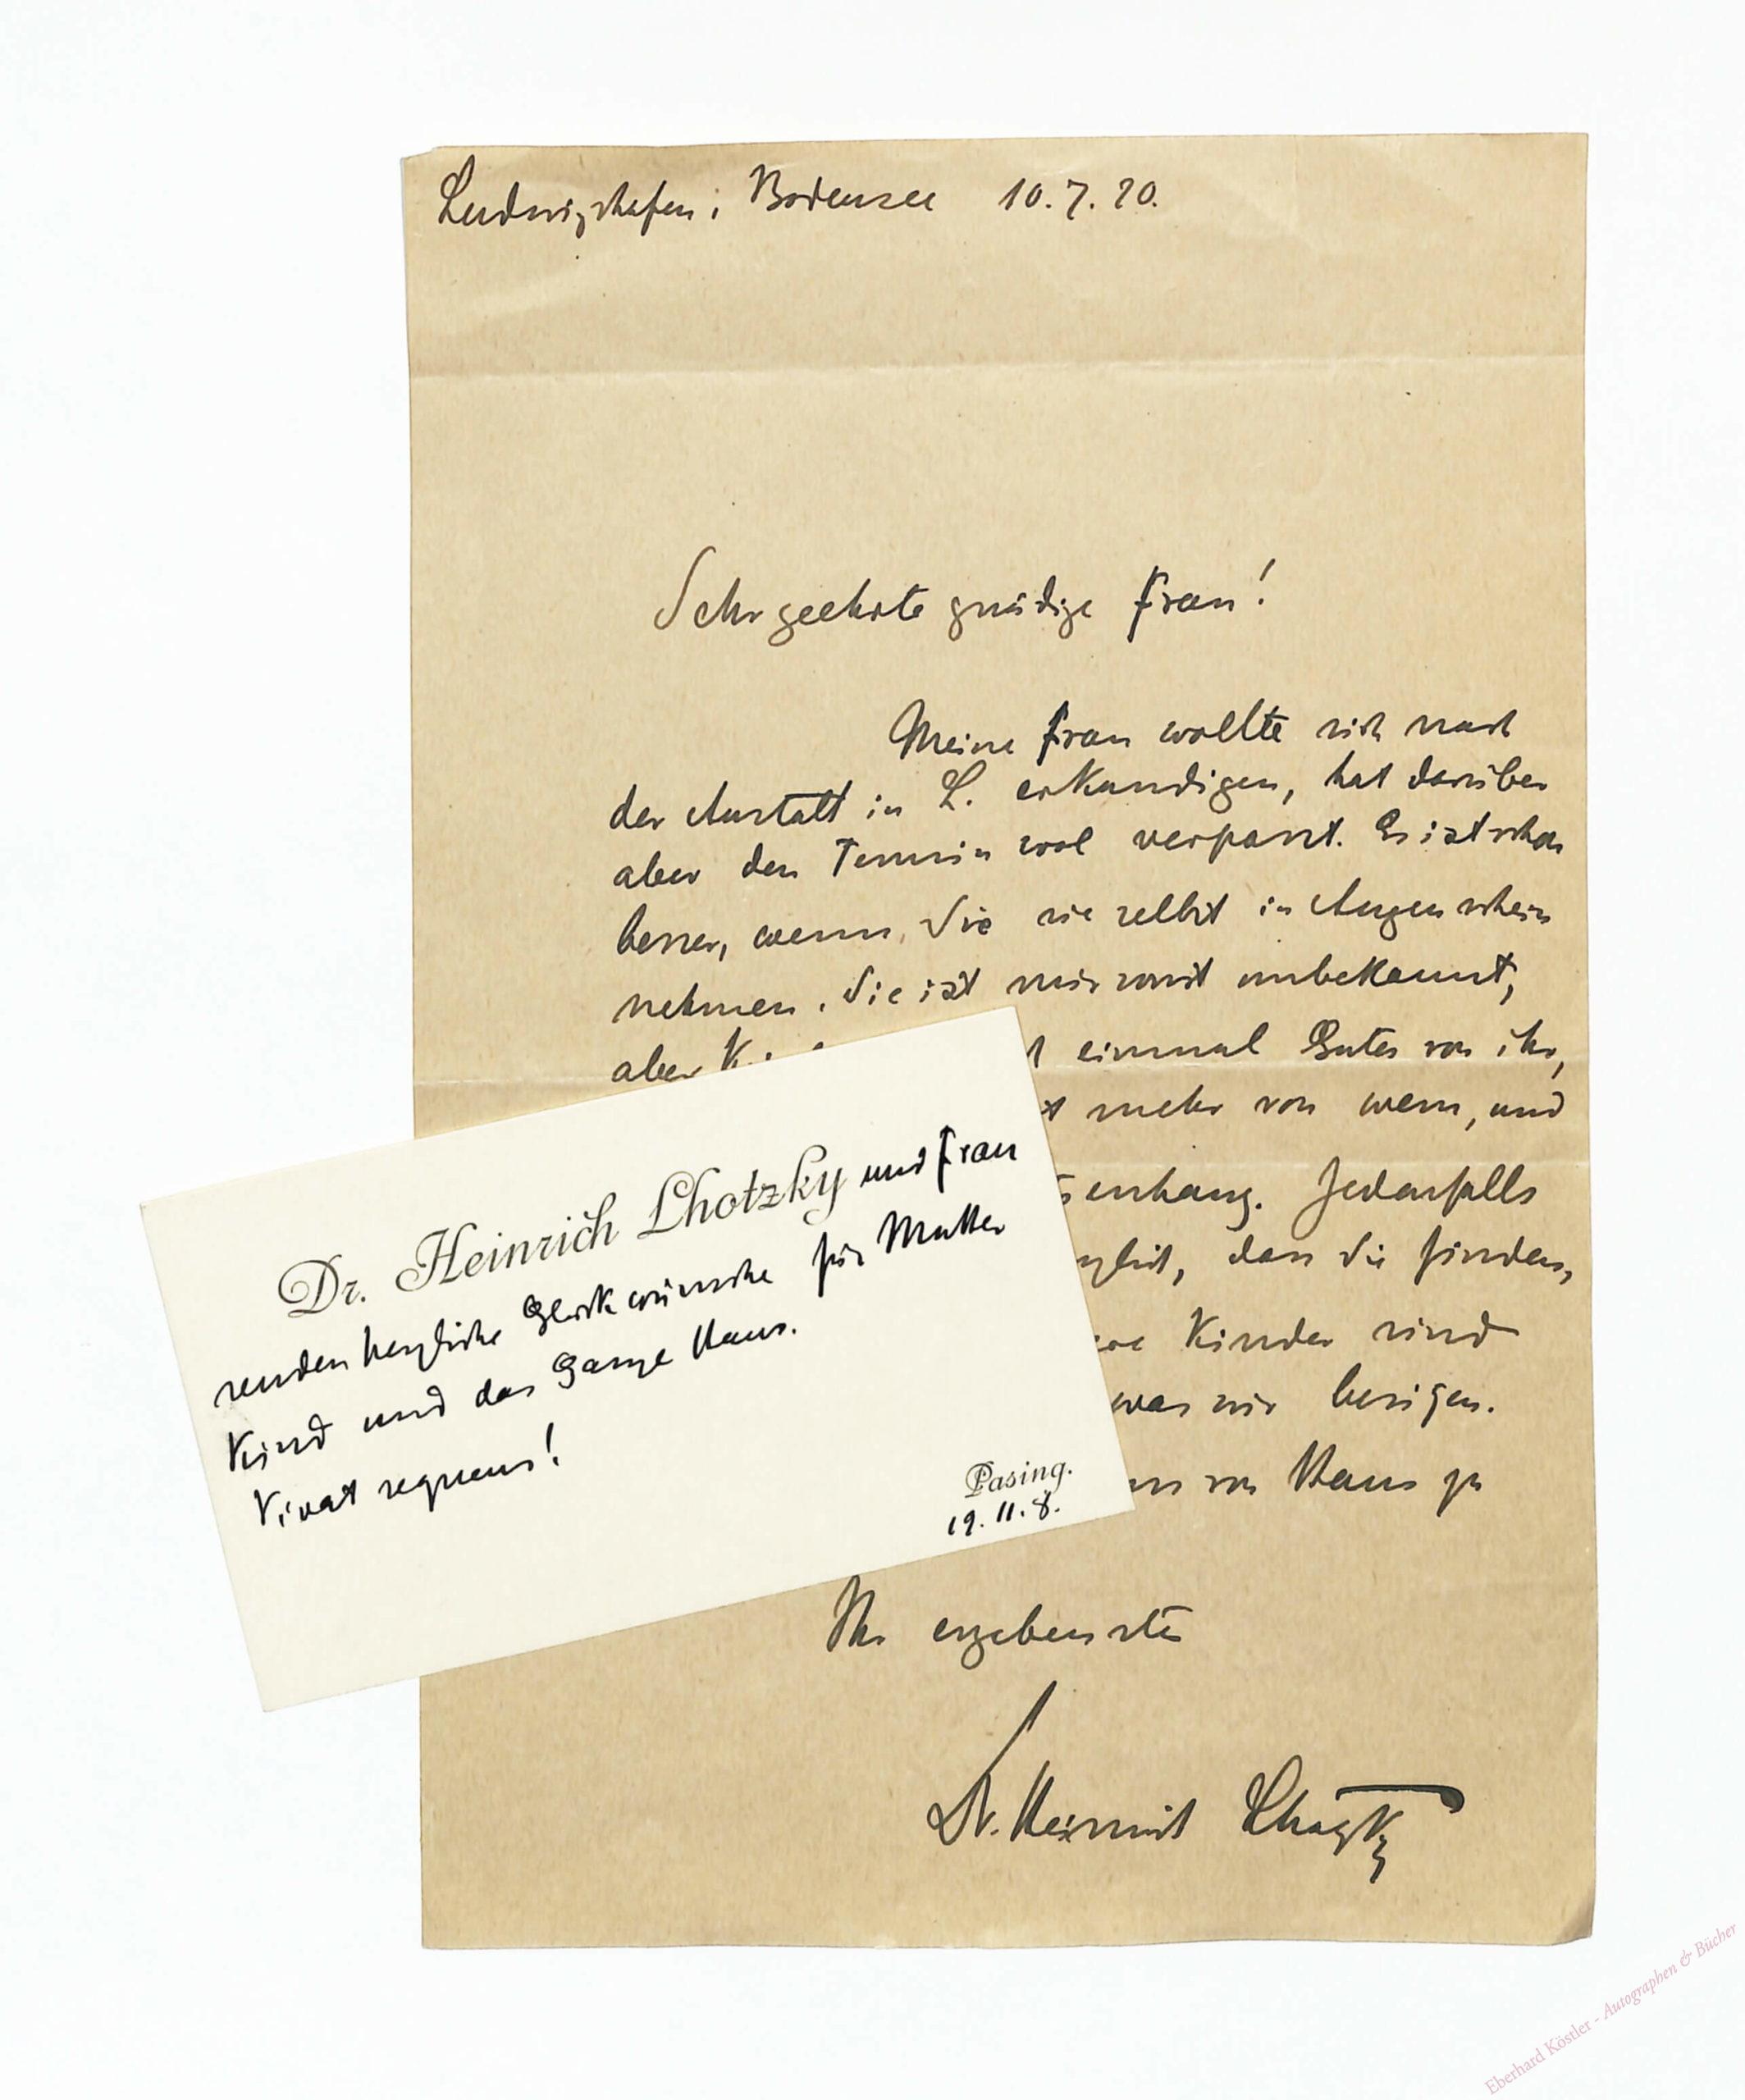 Ludwigshafen i Bodensee 10.7.20.
Sehr geehrte gnädige Frau!
Meine Frau wollte sich nach
der Anstalt in L. erkundigen, hat darüber
aber den Termin wol verpasst. Es ist schon
besser, wenn Sie sie selbst in Augenschein
nehmen. Sie ist mir sonst unbekannt,
aber einmal Gutes von ihr,
mehr von wem, und
senhang. Jedenfalls
dass Sie finden,
Kinder sind
was wir besizen.
von Haus zu
Ihr ergebenster
Dr. Heinrich Lhotzky
Dr. Heinrich Lhotzky und Frau
senden herzliche Glückwünsche für Mutter
Kind und das ganze Haus.
Vivat sequens!
Pasing.
19.11.8.
Eberhard Köstler - Autographen & Bücher